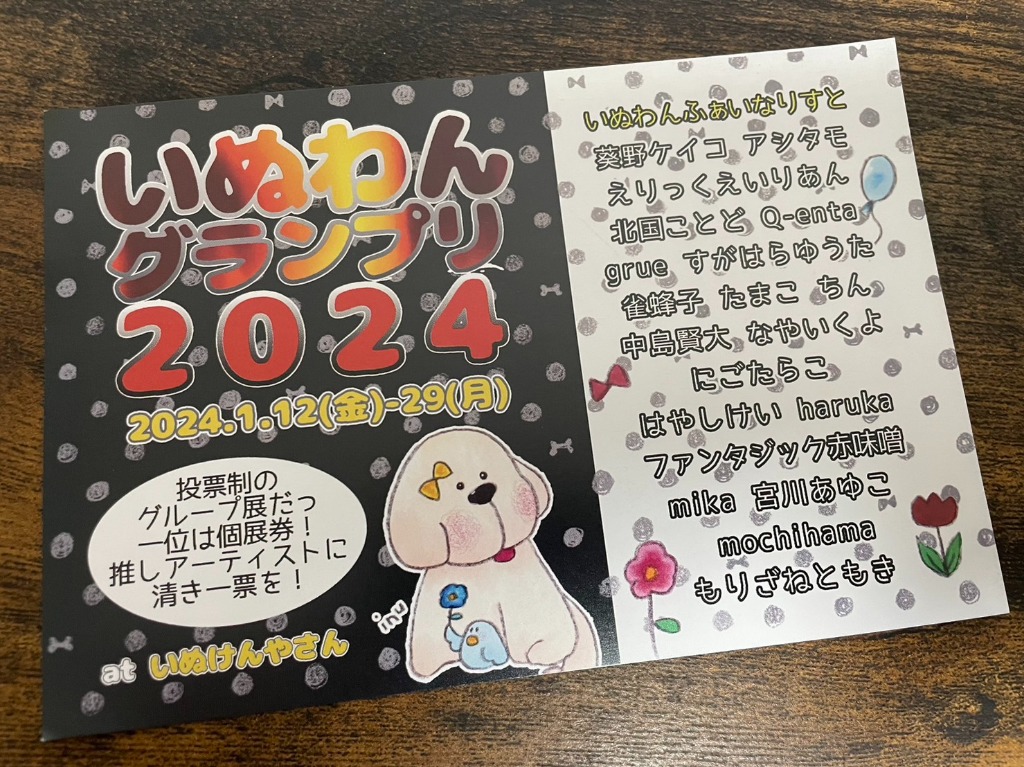 いぬわん
グランプリ
2024
2024.1.12(金)-29(月)
投票制の
グループ展だっ
一位は個展券！
推しアーティストに
清き一票を！
at いぬけんやさん
inu
いぬわんふぁいなりすと
葵野ケイコ アシタモ
えりっくえいりあん
北国ことど Q-enta
grue すがはらゆうた
雀蜂子 たまこ ちん
中島賢大 なやいくよ
にごたらこ
はやしけい haruka
ファンタジック赤味噌
mika 宮川あゆこ
mochihama
もりざねともき